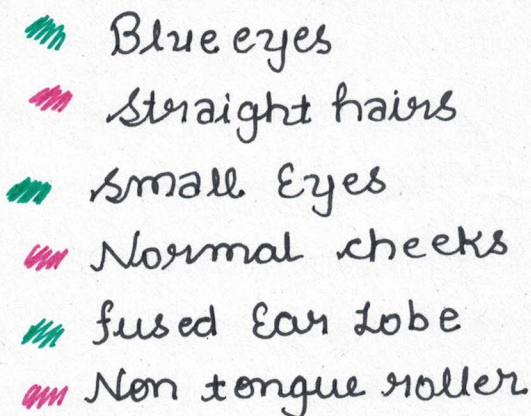 Blue eyes
straight hairs
small Eyes
Normal cheeks
fused Ear Lobe
Non tongue roller